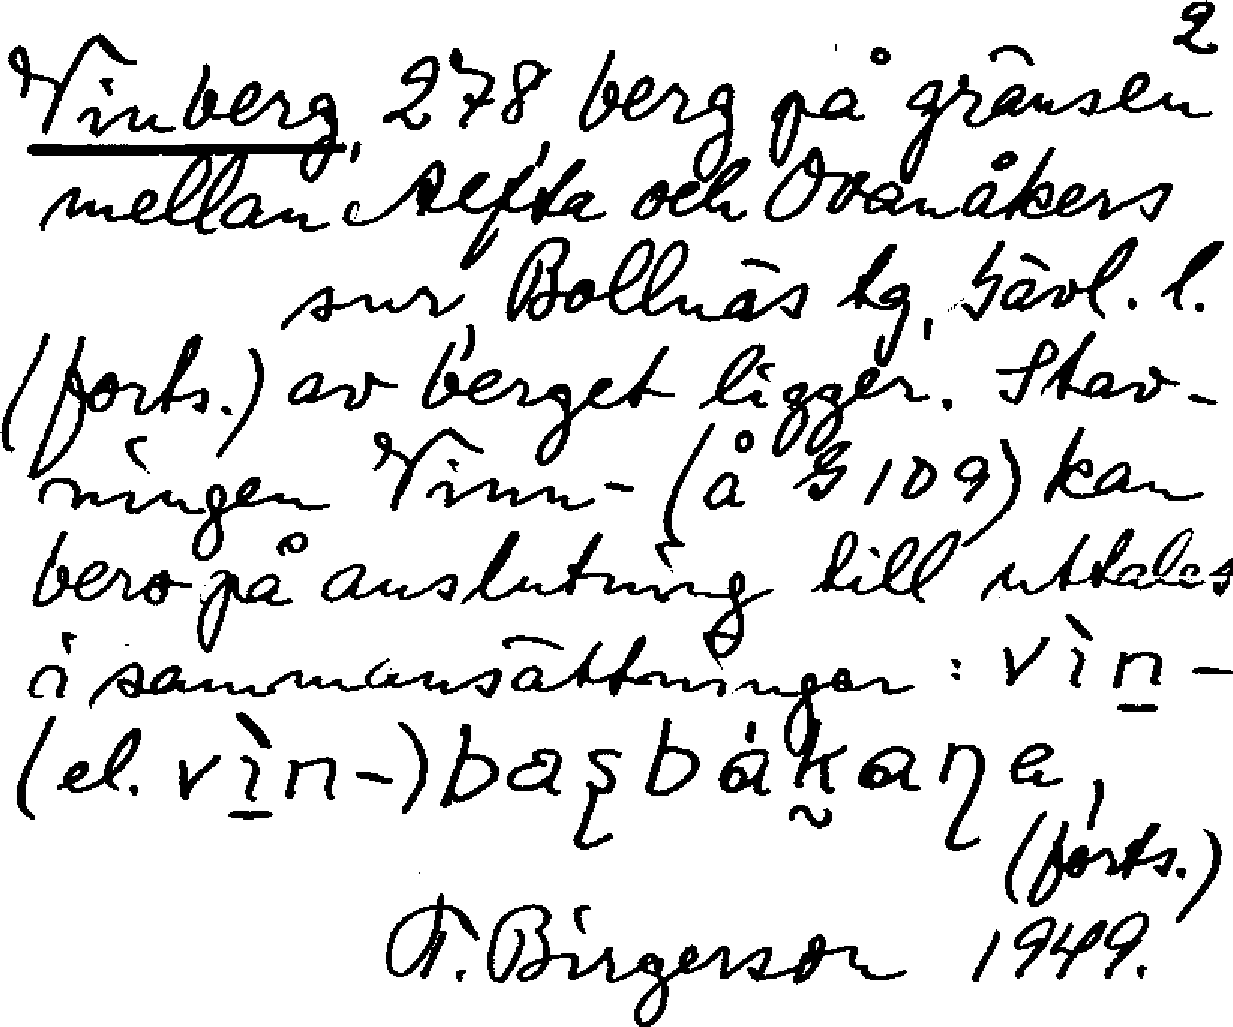 2
Vinberg, 278, berg på gränsen
mellan Alfta och Ovanåkers
snr, Bollnäs tg, Gävl. l.
(forts.) av berget ligger. Stav-
ningen Vinn- (å § 109) kan
bero på anslutning till uttalet
i sammansättningar: vìn-
(el. vìn-)
(forts.)
F. Birgerson 1949.